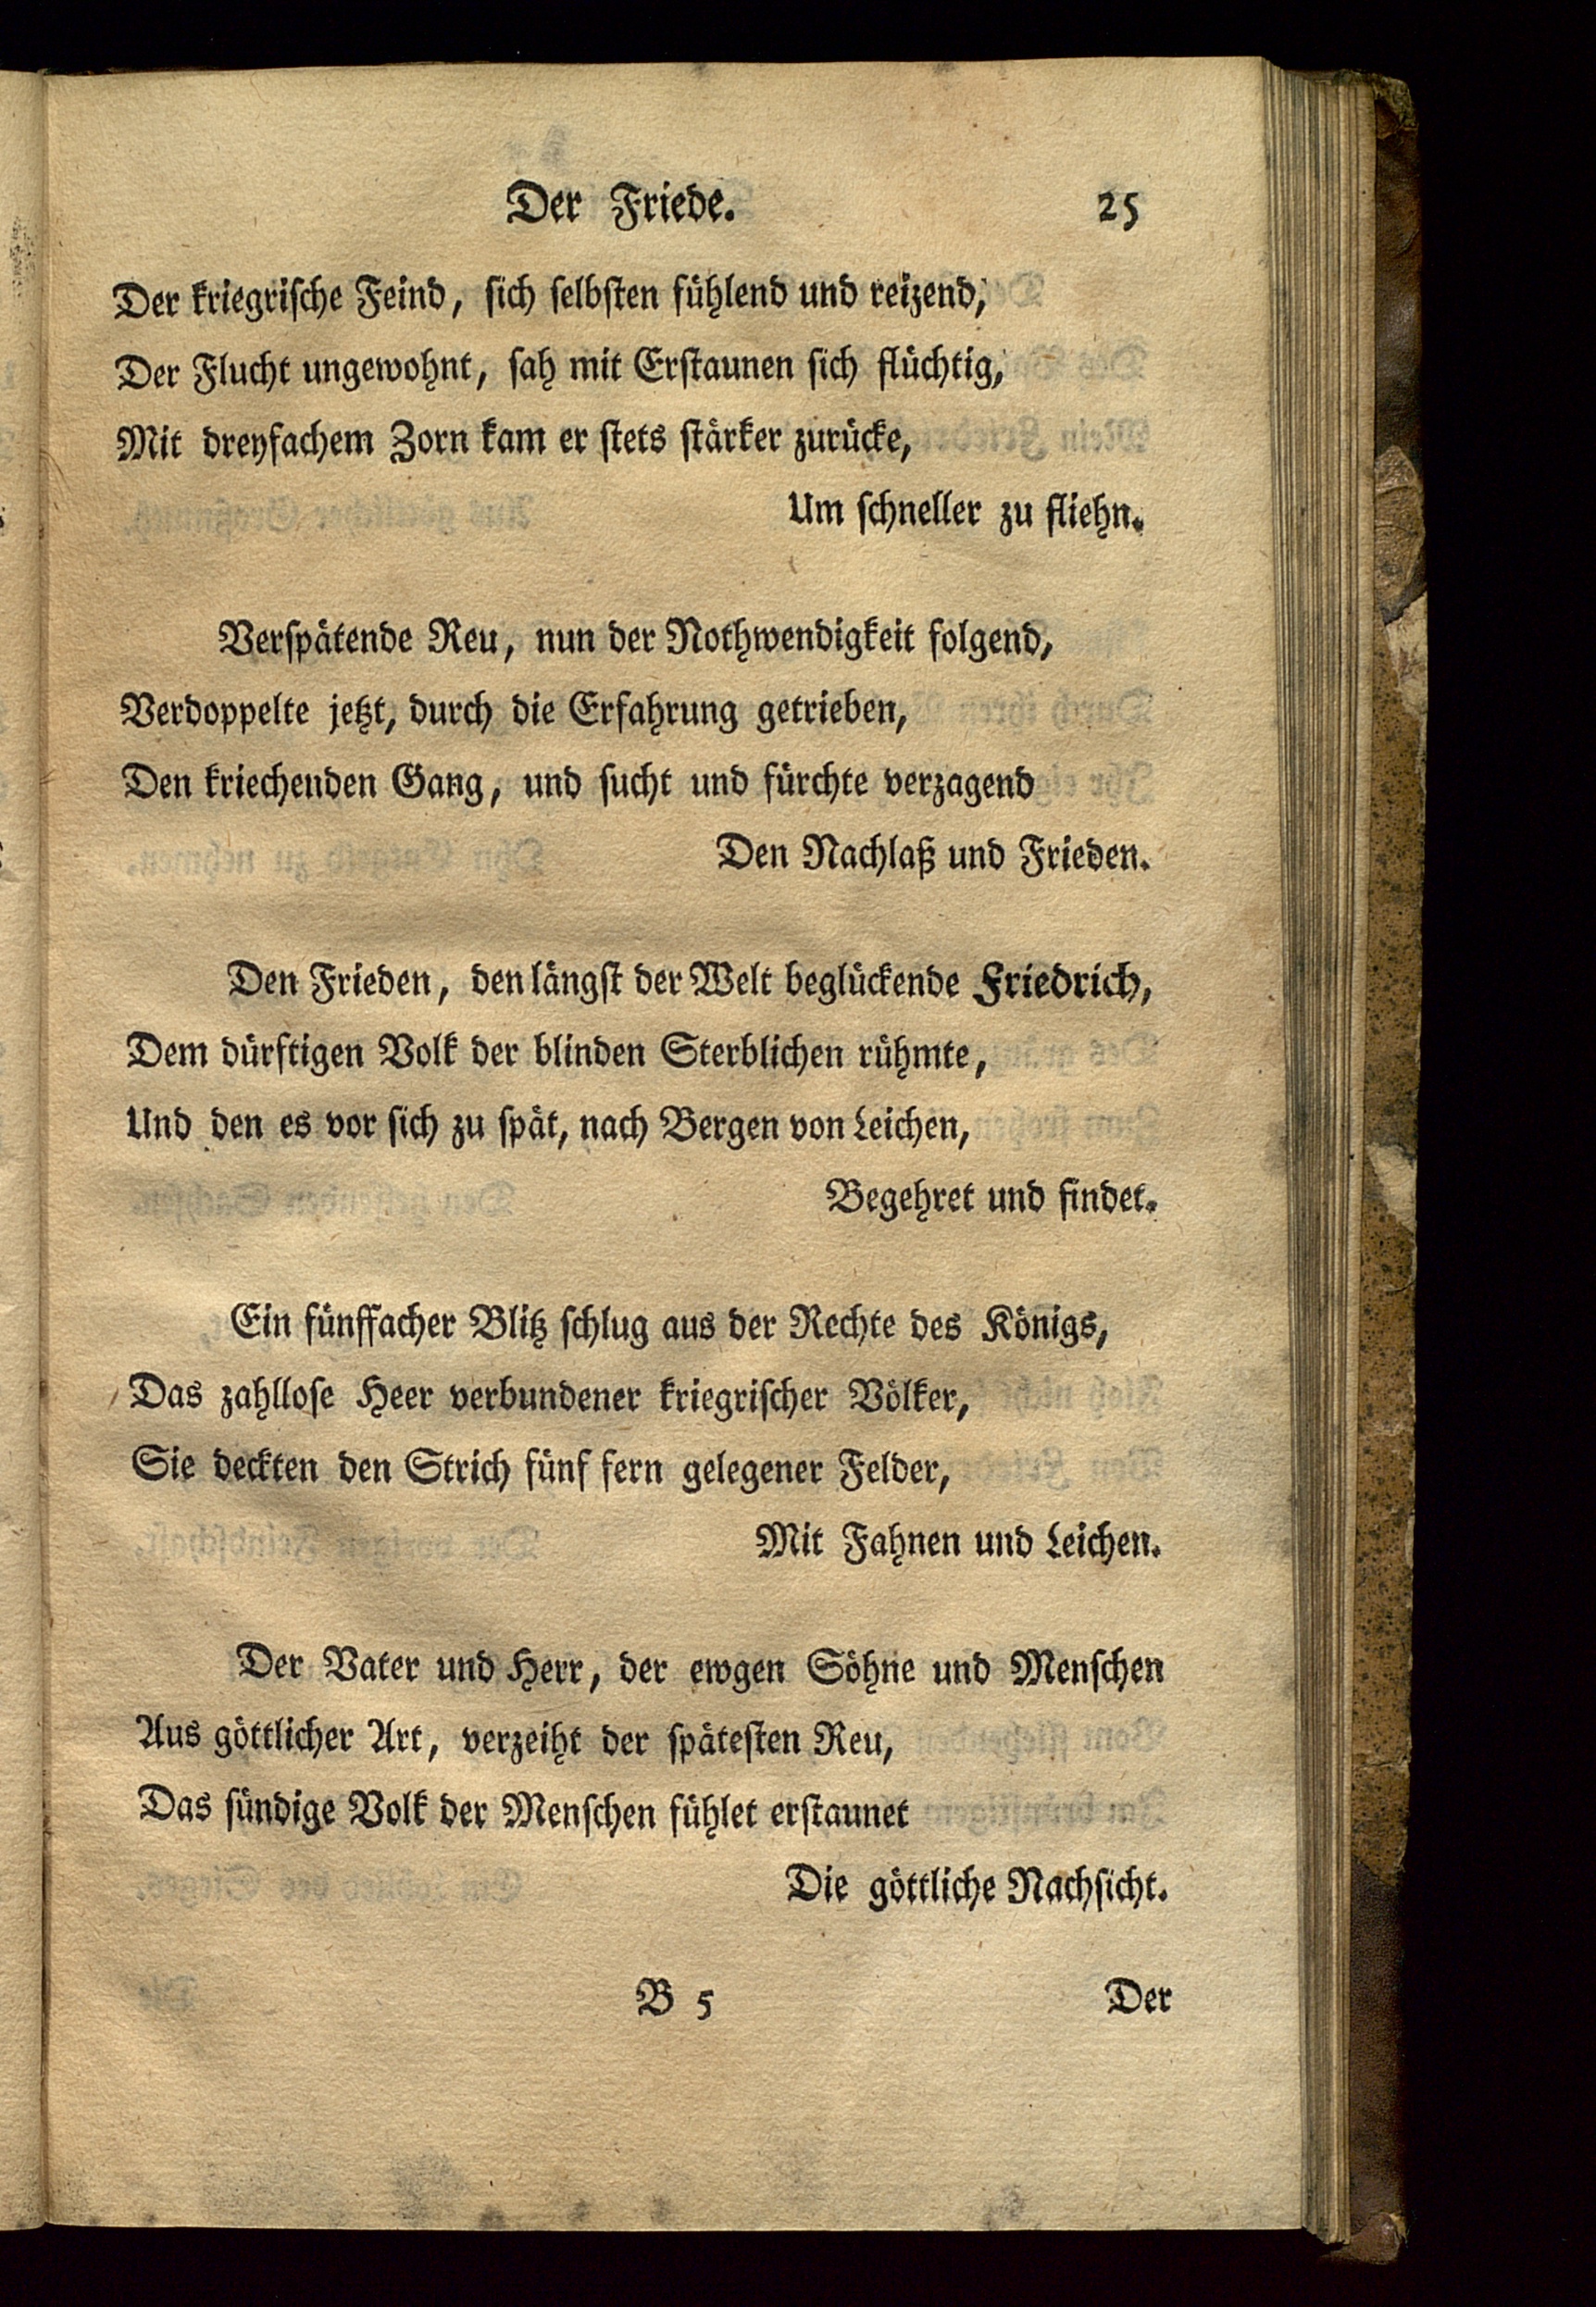 Der Friede. 25
Der kriegrische Feind, sich selbsten fühlend und reizend,
Der Flucht ungewohnt, sah mit Erstaunen sich flüchtig,
Mit dreyfachem Zorn kam er stets stärker zurücke,
Um schneller zu fliehn.
Verspätende Reu, nun der Nothwendigkeit folgend,
Verdoppelte jetzt, durch die Erfahrung getrieben,
Den kriechenden Gang, und sucht und fürchte verzagend
Den Nachlaß und Frieden.
Den Frieden, den längst der Welt beglückende Friedrich,
Dem dürftigen Volk der blinden Sterblichen rühmte,
Und den es vor sich zu spät, nach Bergen von Leichen,
Begehret und findet.
Ein fünffacher Blitz schlug aus der Rechte des Königs,
Das zahllose Heer verbundener kriegrischer Völker,
Sie deckten den Strich fünf fern gelegener Felder,
Mit Fahnen und Leichen.
Der Vater und Herr, der ewgen Söhne und Menschen
Aus göttlicher Art, verzeiht der spätesten Reu,
Das sündige Volk der Menschen fühlet erstaunet
Die göttliche Nachsicht.
B 5 Der